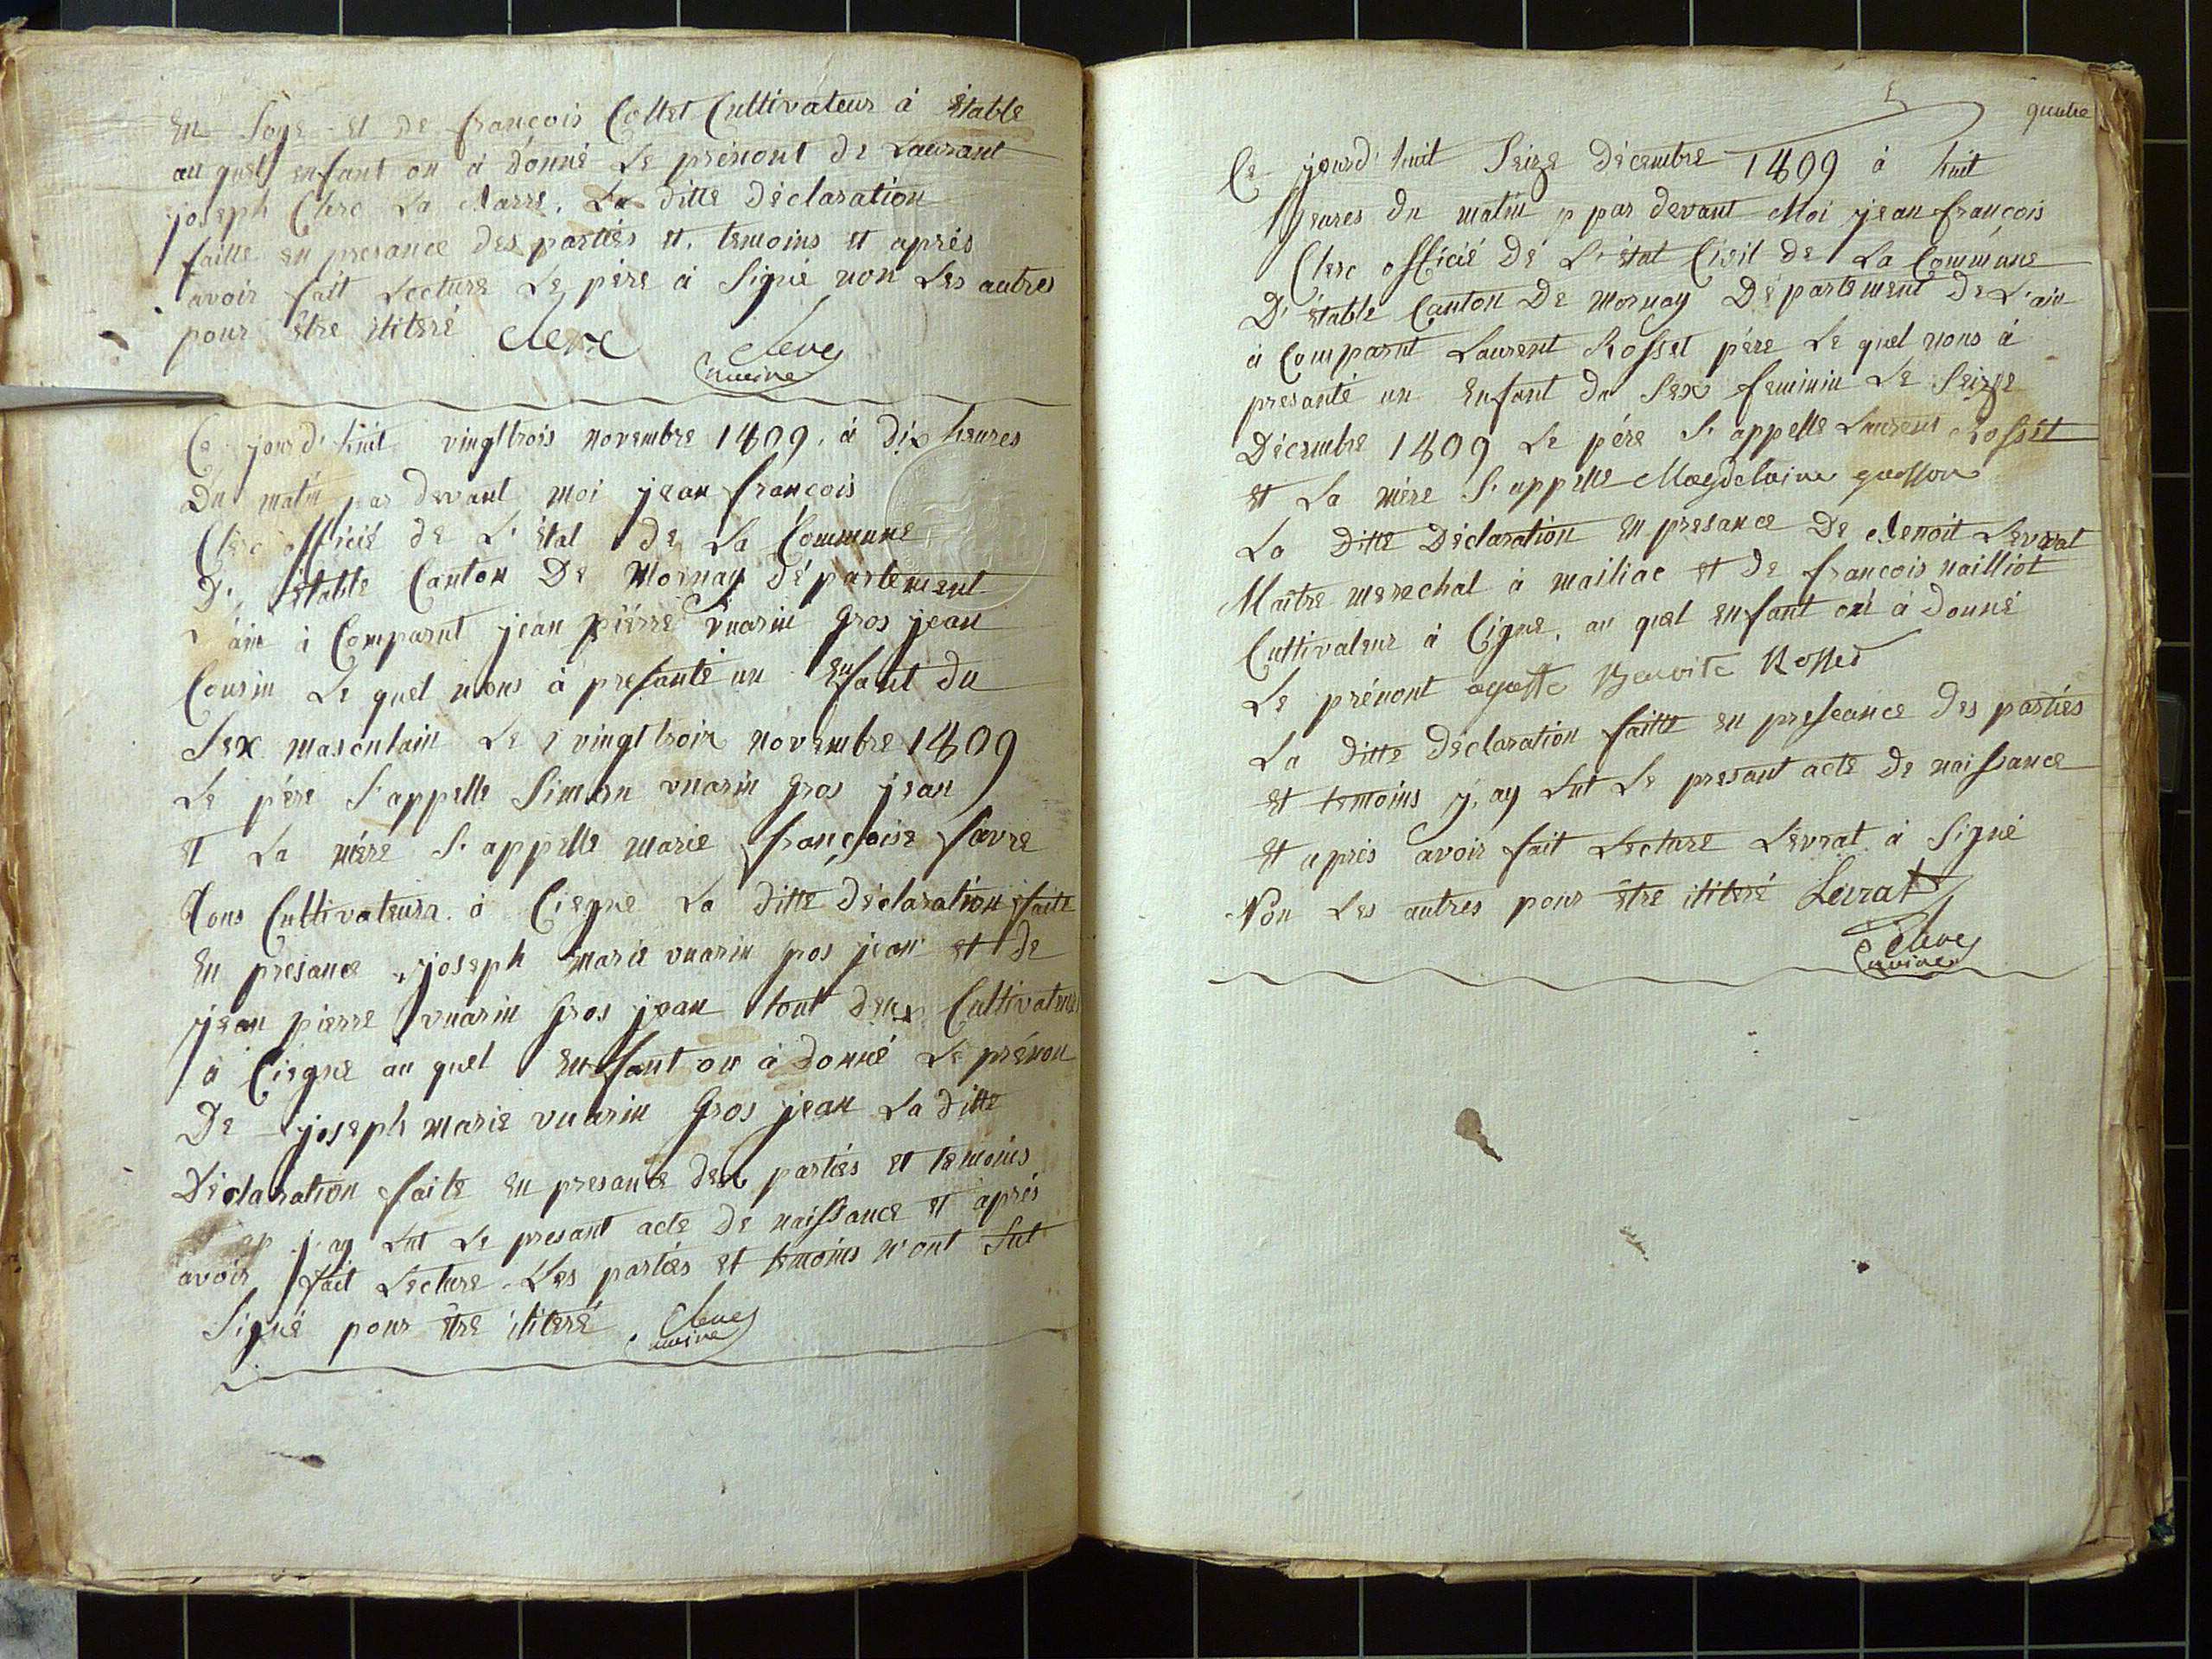 En Soge et de françois Collet Cultivateur à étable
au quel enfant on à donné Le prénont de Laurant
joseph Clerc La Barre. La ditte déclaration
faitte en presance des partiés et temoins et aprés
avoir fait Lecture Le pére à Signé non Les autres
pour étre ilitéré Clerc Clerc
maire
Ce jourd'huit vingttrois novembre 1809. à dix heures
Du matin par devant moi jean françois
Clerc officié de L'état de La Commune
D'étable Canton De Mornay département
d'ain à Comparut jean pierre vuarin gros jean
Cousin Le quel nous à presanté un Enfant du
Sex masculain Le vingttrois novembre 1809
Le pére S'appelle Simon vuarin gros jean
et La mére S'appelle marie françoise favre
Tous Cultivateurs à Ciegne La ditte déclaration faite
En presance joseph marie vuarin gros jean et de
jean pierre vuarin gros jean tout deux Cultivateurs
à Ciegne au quel Enfant on à donné Le prénon
De joseph marie vuarin gros jean La ditte
Déclaration faite en presance des partiés et temoins
j'ay Lut Le presant acte de naissance et aprés
avoir fait Lecture Les partiés et temoins n'ont Sut
Signé pour étre ilitéré Clerc
maire
quatre
Ce jourd'huit Seize décembre 1809 à huit
heures du matin p par devant Moi jean françois
Clerc officié de L'état Civil de La Commune
D'étable Canton De Mornay Département de L'ain
à Comparut Laurent Rosset pére Le quel nous à
presanté un Enfant du Sex feminin Le Seize
Décembre 1809 Le pére S'appelle Laurent Rosset
et La mére S'appelle Magdelaine
La ditte Déclaration en presance De Benoit Levrat
Maître marechal à mailiac et de françois nailliot
Cultivateur à Cigne. au quel enfant on à donné
Le prénont agatte Benoite Rosset
La ditte déclaration faitte en preseance des partiés
et temoins j'ay Lut Le presant acte de naissance
et aprés avoir fait Lecture Levrat à Signé
Non Les autres pour étre ilitéré Levrat
Clerc
maire